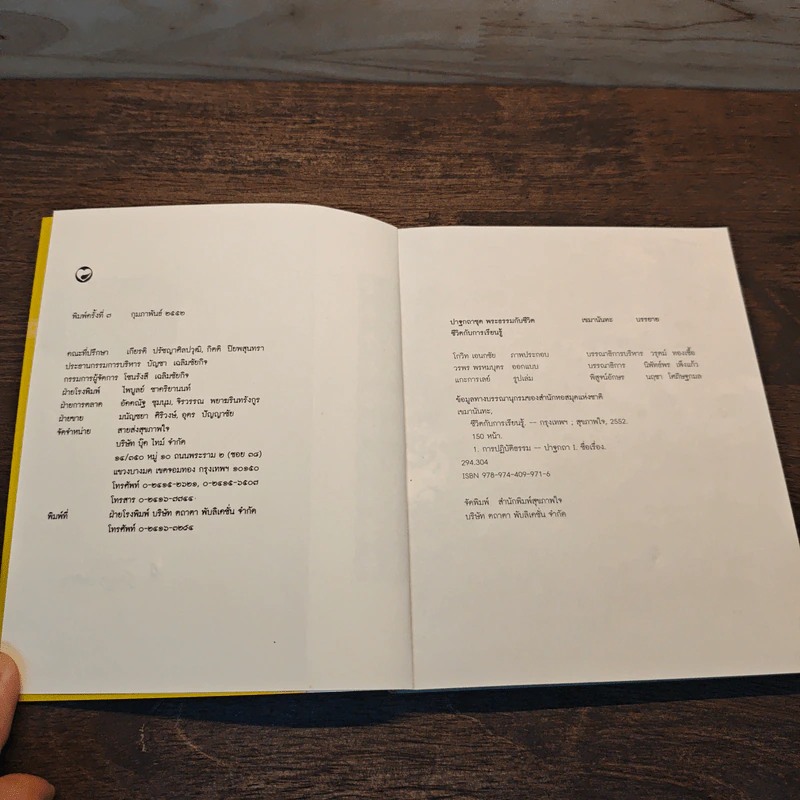 พิมพ์ครั้งที่ ๓ กุมภาพันธ์ ๒๕๕๒
คณะที่ปรึกษา เกียรติ ปรัชญาศิลปวุฒิ, กิตติ ปิยพสุนทรา
ประธานกรรมการบริหาร บัญชา เฉลิมชัยกิจ
กรรมการผู้จัดการ โชนรังสี เฉลิมชัยกิจ
ฝ่ายโรงพิมพ์ ไพบูลย์ ชาครียานนท์
ฝ่ายการตลาด อัคคณัฐ ชุมนุม, จิรวรรณ พยาฆรินทรังกูร
ฝ่ายขาย มนัญชยา ศิริวงษ์, อุดร ปัญญาชัย
จัดจำหน่าย สายส่งสุขภาพใจ
บริษัท บุ๊ค ไทม์ จำกัด
๑๔/๓๕๐ หมู่ ๑๐ ถนนพระราม ๒ (ซอย ๓๘)
แขวงบางมด เขตจอมทอง กรุงเทพฯ ๑๐๑๕๐
โทรศัพท์ ๐-๒๔๑๕-๒๖๒๑, ๐-๒๔๑๕-๖๕๐๗
โทรสาร ๐-๒๔๑๖-๗๗๔๔
พิมพ์ที่ ฝ่ายโรงพิมพ์ บริษัท ตถาตา พับลิเคชั่น จำกัด
โทรศัพท์ ๐-๒๔๑๖-๓๒๙๔
ปาฐกถาชุด พระธรรมกับชีวิต เขมานันทะ บรรยาย
ชีวิตกับการเรียนรู้
โกวิท เอนกชัย ภาพประกอบ บรรณาธิการบริหาร วรุตม์ ทองเชื้อ
วรพร พรหมบุตร ออกแบบ บรรณาธิการ นิพัทธ์พร เพ็งแก้ว
แกะการเลย์ รูปเล่ม พิสูจน์อักษร นฤชา
ข้อมูลทางบรรณานุกรมของสำนักหอสมุดแห่งชาติ
เขมานันทะ.
ชีวิตกับการเรียนรู้. -- กรุงเทพฯ : สุขภาพใจ, 2552.
150 หน้า.
1. การปฏิบัติธรรม -- ปาฐกถา I. ชื่อเรื่อง.
294.304
ISBN 978-974-409-971-6
จัดพิมพ์ สำนักพิมพ์สุขภาพใจ
บริษัท ตถาตา พับลิเคชั่น จำกัด